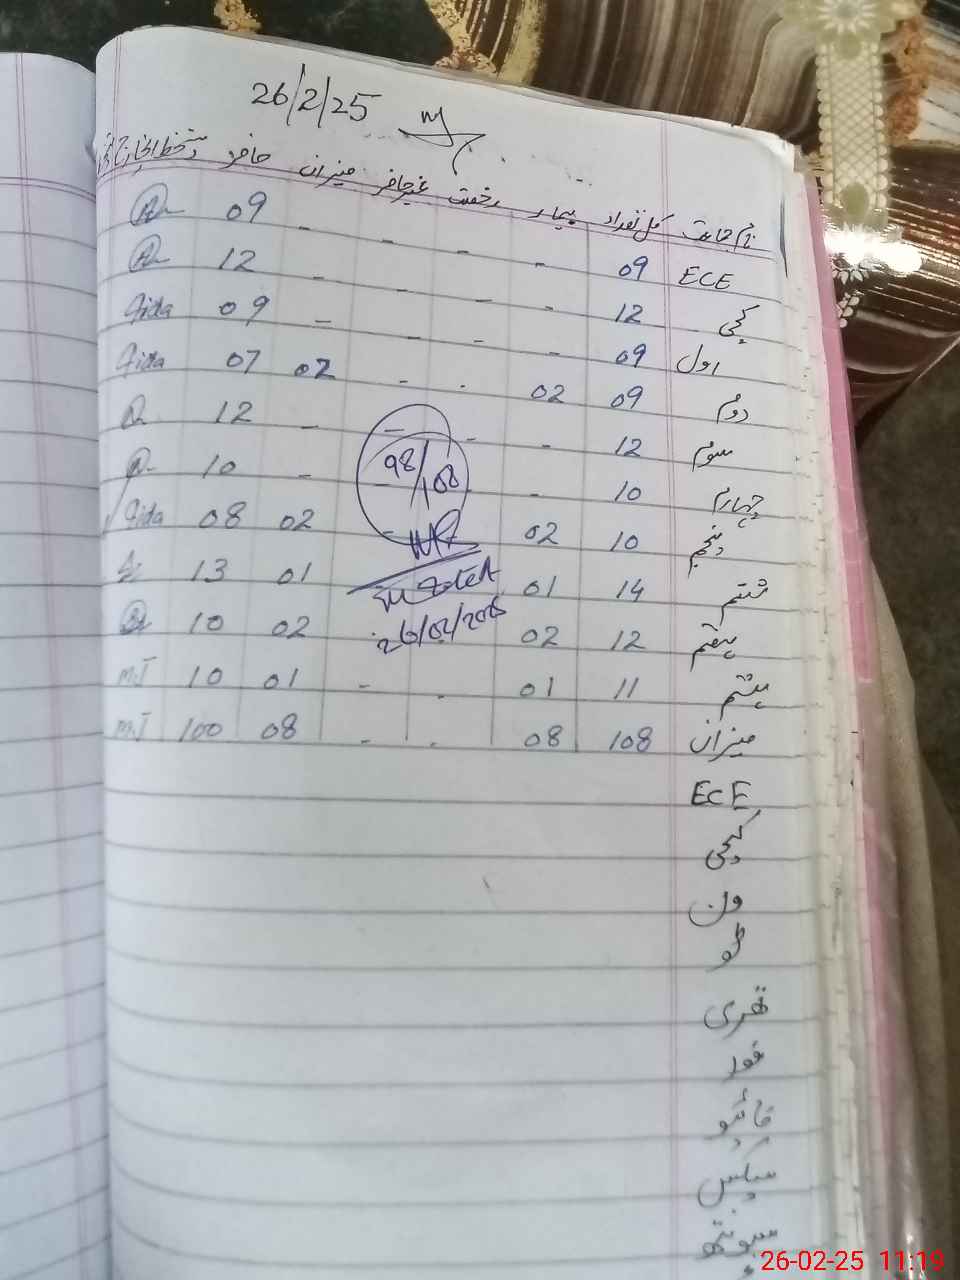 26/2/25
نام جماعت کل تعداد بیمار رخصت غیر حاضر میزان حاضر دستخط انچارج
ECE 09 - - - - 09
کچی 12 - - - - 12
اول 09 - - - - 09 Aida
دوم 09 02 - - 02 07 Aida
سوم 12 - - - - 12
چہارم 10 - - - 10
پنجم 10 02 02 08 Aida
ششم 14 01 01 13
ہفتم 12 02 02 10
ہشتم 11 01 - - 01 10 M.I
میزان 108 08 - - 08 100 M.I
98/108
26/02/2025
ECE
کچی
ون
ٹو
تھری
فور
فائیو
سیکس
سیونتھ
26-02-25 11:19